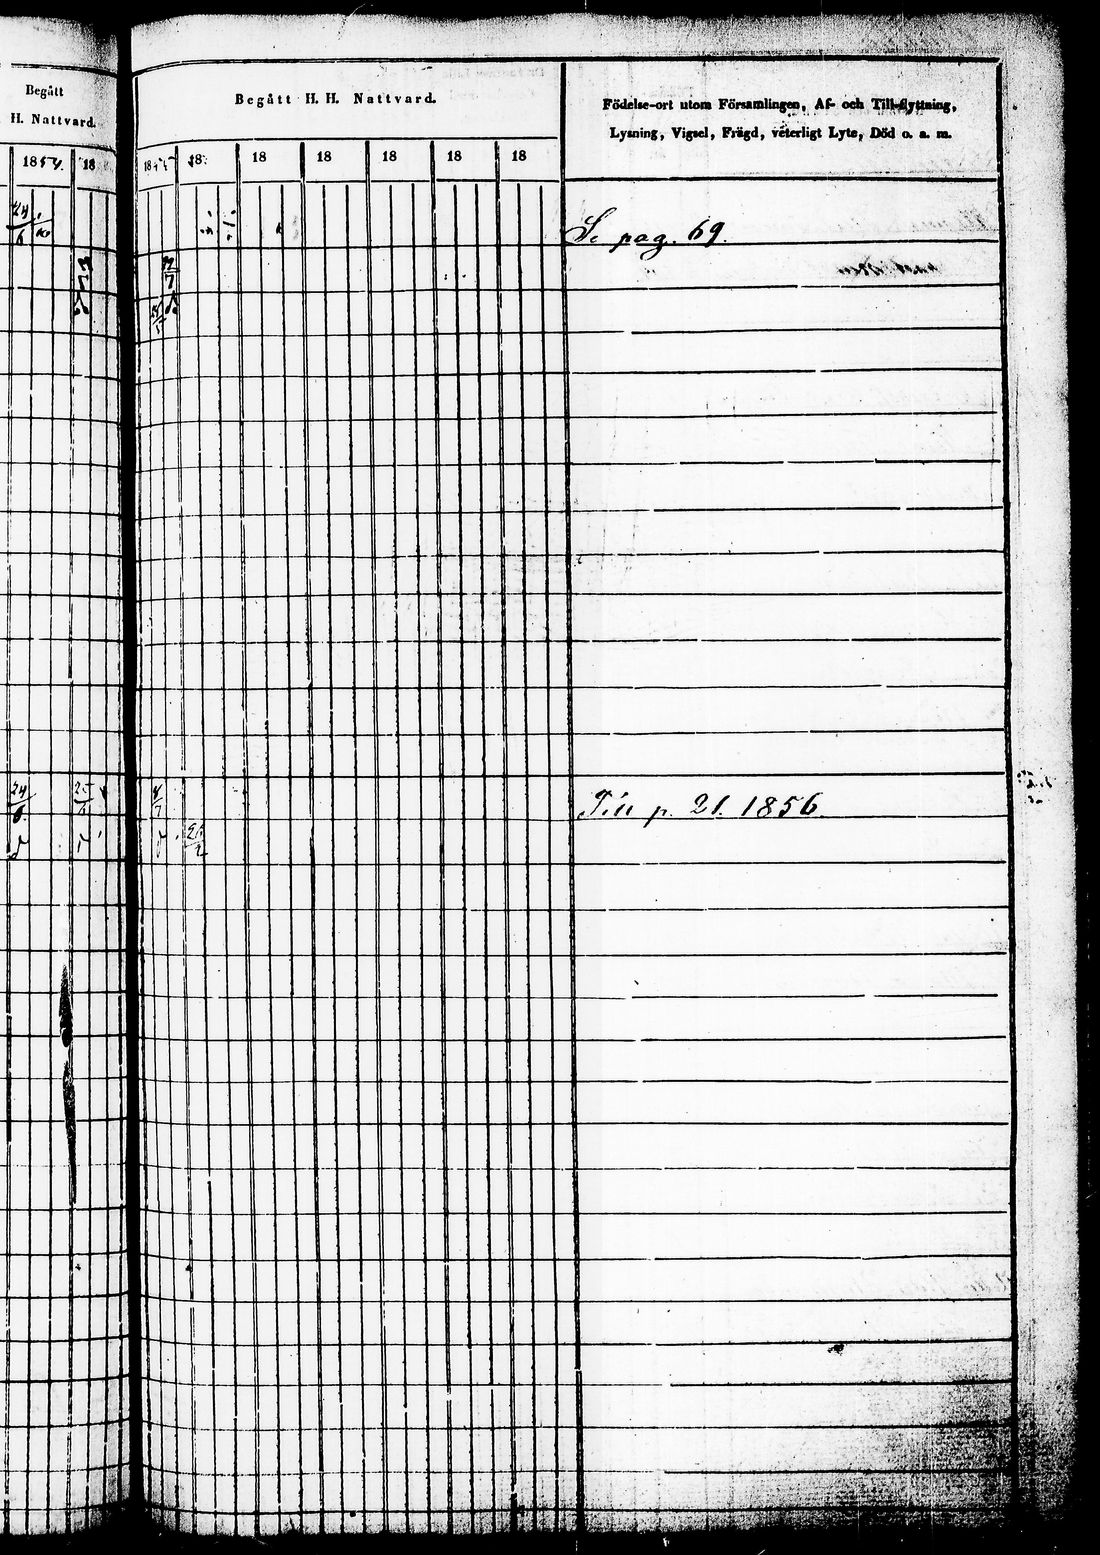 Begått
H. Nattvard.
1854. 18
24/6
24/6 25/6
Begått H. H. Nattvard.
1855 18 18 18 18 18 18
8/7
Födelse-ort utom Församlingen, Af- och Till-flyttning,
Lysning, Vigsel, Frägd, veterligt Lyte, Död o. a. m.
Se pag. 69.
Till p. 21. 1856.